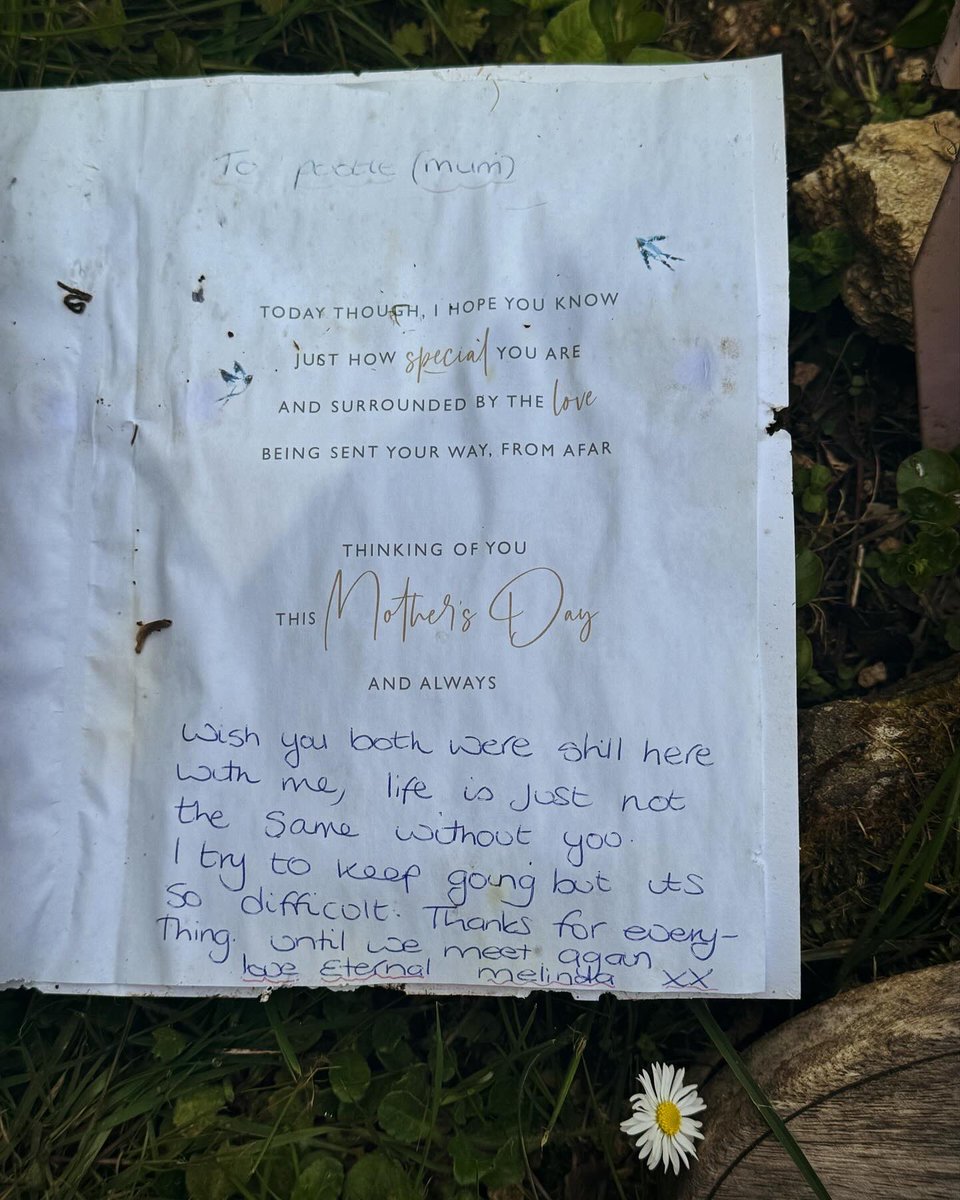 To (mum)
TODAY THOUGH, I HOPE YOU KNOW
JUST HOW special YOU ARE
AND SURROUNDED BY THE love
BEING SENT YOUR WAY, FROM AFAR
THINKING OF YOU
THIS Mother's Day
AND ALWAYS
Wish you both were still here
with me, life is just not
the same without you.
I try to keep going but its
so difficult. Thanks for every-
Thing. until we meet again
love Eternal melinda xx